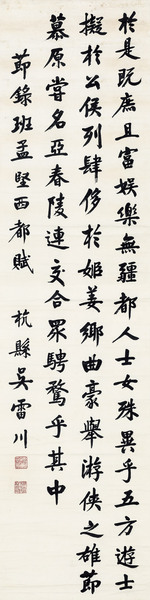 於是既庶且富娛樂無疆都人士女殊異乎五方遊士
擬於公侯列肆侈於姬姜鄉曲豪舉游俠之雄節
慕原嘗名亞春陵連交合眾騁騖乎其中
節錄班孟堅西都賦 杭縣吳雷川